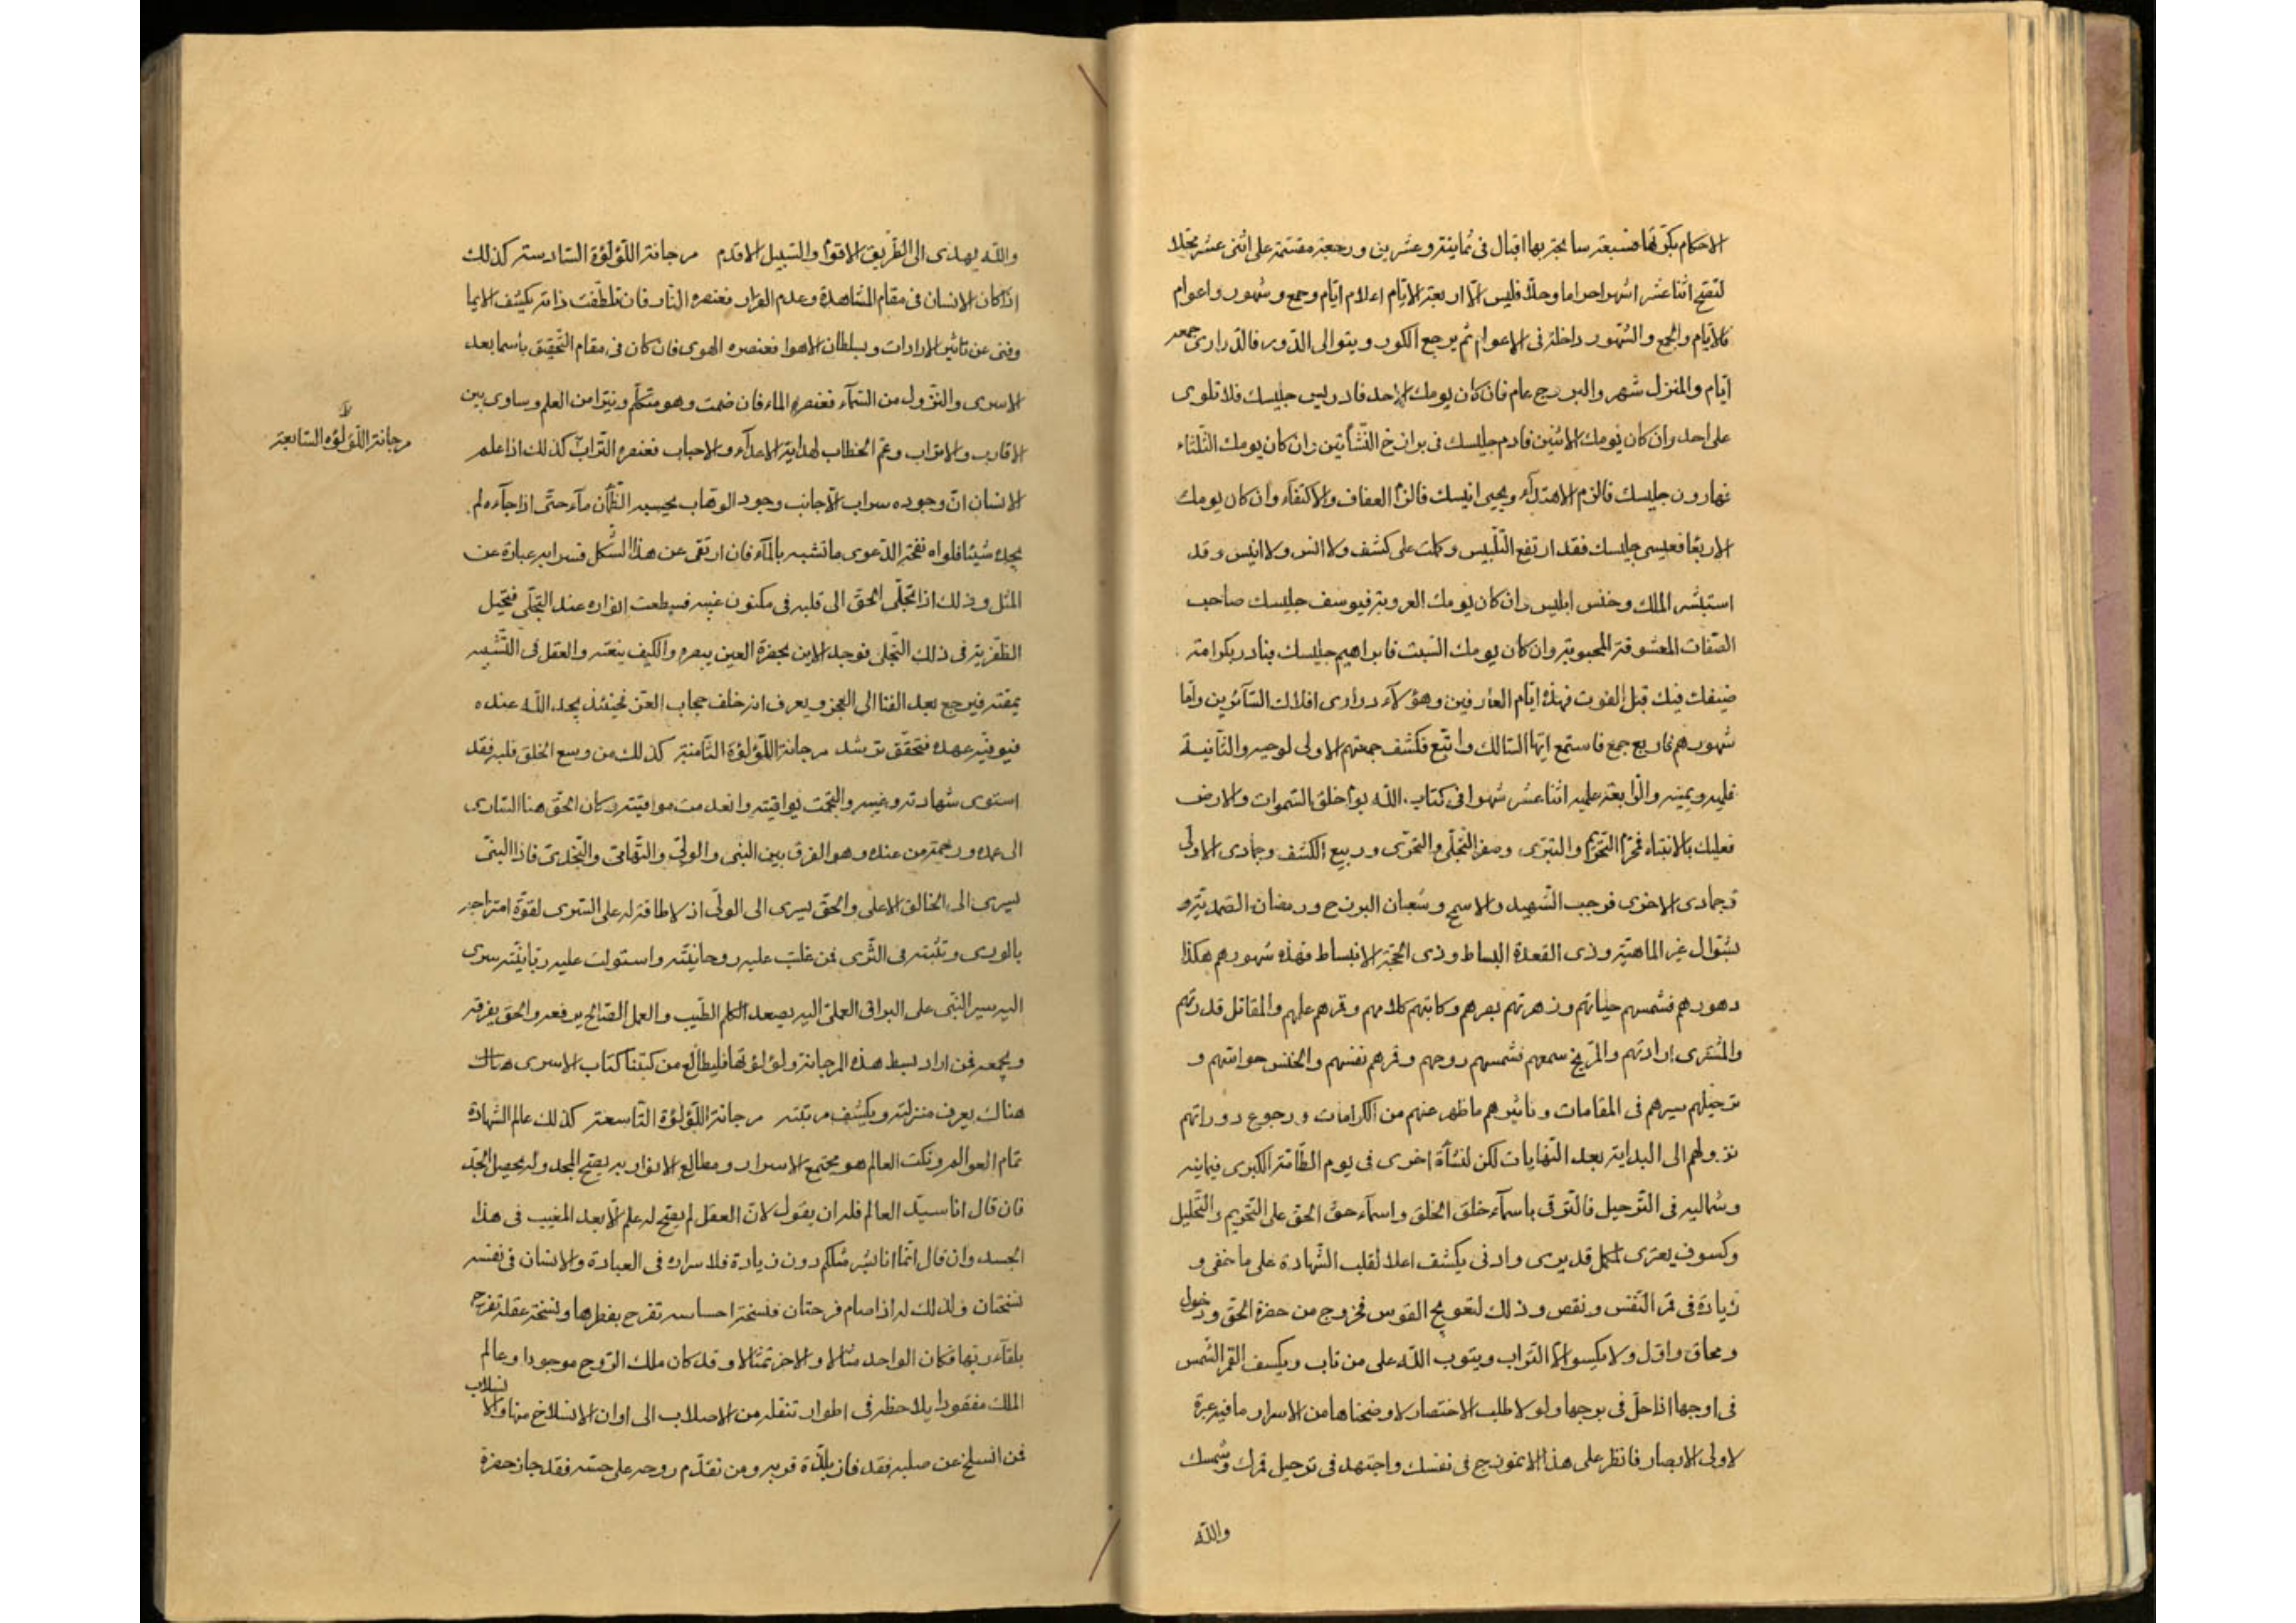 الاحكام بكونها فسبعة سابحة بها اقبال في ثمانية وعشرين ورجعة مقتسمة على اثنى عشر محلا
لتفتح اثنا عشر اشهرا حراما وحلا فليس الا اربعة الايام اعلام ايام وجمع وشهور واعوام
فالايام والجمع والشهور داخلة في الاعوام ثم يرجع الكور ويتوالى الدور فالدراري جمعه
ايام والمنزل شهر والبروج عام فان كان يومك الاحد فادريس جليسك فلا تلوى
على احد وان كان يومك الاثنين فادم جليسك في برازخ النشأتين وان كان يومك الثلثاء
فهارون جليسك فالزم الاهتداء ويحيى انيسك فالزم العفاف والاكتفاء وان كان يومك
الاربعا فعيسى جليسك فقد ارتفع التلبيس وكلت على كشف ولا انس ولا انيس وقد
استبشر الملك وخنس ابليس وان كان يومك العروبة فيوسف جليسك صاحب
الصفات المعشوقة المحبوبة وان كان يومك السبت فابراهيم جليسك فبادر بكرامة
ضيفك فيك قبل الفوت فهذه ايام العارفين وهؤلاء دراري افلاك السائرين واما
شهورهم فاربع جمع فاستمع ايها السالك واتبع فكشف جمعتهم الاولى لوحيه والثانية
قلميه ويمينه والرابعة علميه اثنا عشر شهرا في كتاب الله يوم خلق السموات والارض
فعليك بالانتباه فمحرم التحريم والتبرى وصفر التجلى والتحرى وربيع الكشف وجمادى الاولى
وجمادى الاخرى فرجب الشهيد والاسمح وشعبان البرزخ ورمضان الصمدية و
شوال غير الماهية وذى القعدة البساط وذى الحجة الانبساط فهذه شهورهم هكذا
دهورهم فشمسهم حياتهم وزهرتهم بصرهم وكاتبهم كلامهم وقمرهم علمهم والمقاتل قدرتهم
والمشترى ارادتهم والمريخ سمعهم فشمسهم روحهم وقمرهم نفسهم والخنس حواسهم و
ترحيلهم سيرهم في المقامات وتاثيرهم ما ظهر عنهم من الكرامات ورجوع دوراتهم
نزولهم الى البداية بعد النهايات لكن لنشأة اخرى في يوم الطامة الكبرى فيمانيه
وشماليه في الترحيل فالتوقى باسماء خلق الخلق واسماء حق الحق على التحريم والتحليل
وكسوف يعترى لكل قد يرى وادنى يكشف اعلا لقلب الشهادة على ما خفى و
زيادة في قمر النفس ونقص وذلك لتعويج القوس فخروج من حضرة الحق ودخول
ومحاق وافل ولا يكسو الا التراب ويتوب الله على من تاب ويكسف القمر الشمس
في اوجها اذا حل في بوجها ولو لا طلب الاختصار لاوضحناها من الاسرار ما فيه عبرة
لاولى الابصار فانظر على هذا الانموذج في نفسك واجتهد في ترحيل قمرك وشمسك
والله
والله يهدى الى الطريق الاقوم والسبيل الاقدم مرجانة اللؤلؤة السادسة كذلك
اذا كان الانسان في مقام المشاهدة وعدم القرار فعنصره النار فان تلطفت ذاته بكشف الايما
وفنى عن تاثير الارادات وسلطان الاهوا فعنصره الهوى فان كان في مقام التحقيق باسما بعد
الاسرى والنزول من السماء فعنصره الماء فان صمت وهو متكلم وتبرا من العلم وساوى بين
الاقارب والاتراب وعم الخطاب لهداية الاعداء والاحباب فعنصره التراب كذلك اذا علم
مرجانة اللؤلؤه السابعة
الانسان ان وجوده سراب الاجانب وجود الوهاب يحسبه الظمآن ماء حتى اذا جاءه لم
يجده شيئا فلواه نفخة الدعوى ما تشبه بالماء فان ارتقى عن هذا الشكل فسرابه عبارة عن
المثل وذلك اذا تجلى الحق الى قلبه في مكنون غيبه فسطعت انواره عند التجلى فتخيل
الظفرية في ذلك التجلى فوجد الاين بحضرة العين يبصره والكيف ينعته والعقل في التشبيه
يمقته فيرجع بعد الفنا الى العجز ويعرف انه خلف حجاب العز فحينئذ يجد الله عنده
فيوفيه عهده فتحقق ترشد مرجانة اللؤلؤة الثامنة كذلك من وسع الخلق قلبه فقد
استوى شهادته وغيبه والتجمت يواقيته وانعدمت مواقيته وكان الحق هنا السارى
الى عبده ورحمة من عنده وهو الفرق بين النبى والولى والتهامى والنجدى فاذا النبى
يسرى الى الخالق الاعلى والحق يسرى الى الولى اذ لا طاقة له على السرى لقوة امتزاجه
بالورى وتثبته في الثرى فمن غلبت عليه روحانيته واستولت عليه ربانيته سرى
اليه سير النبى على البراق العملى اليه يصعد الكلم الطيب والعمل الصالح يرفعه والحق يفرقه
ويجمعه فمن اراد بسط هذه المرجانة ولؤلؤتها فليطالع من كتبنا كتاب الاسرى هناك
هناك يعرف منزلته ويكشف مرتبته مرجانة اللؤلؤة التاسعة كذلك عالم الشهادة
تمام العوالم ونكت العالم هو مجتمع الاسرار ومطالع الانوار به يفتح المجد وله يحصل الجد
فان قال انا سيد العالم فله ان يقول لان العقل لم يفتح له علم الا بعد المغيب في هذا
الجسد وان قال انما انا بشر مثلكم دون زيادة فلاسراره في العبادة والانسان في نفسه
نسختان ولذلك له اذا صام فرحتان فنسخة احساسه تفرح بفطرها ونسخة عقله تفرح
بلقاء ربها فكان الواحد مثالا والاخر تمثالا وقد كان ملك الروح موجودا وعالم
الملك مفقودا يلاحظه في اطوار تنقله من الاصلاب الى اوان الانسلاخ منها والانسلاب
فمن انسلخ عن صلبه فقد فاز بلذة قربه ومن تقدم روحه على حسه فقد جاز حضرة